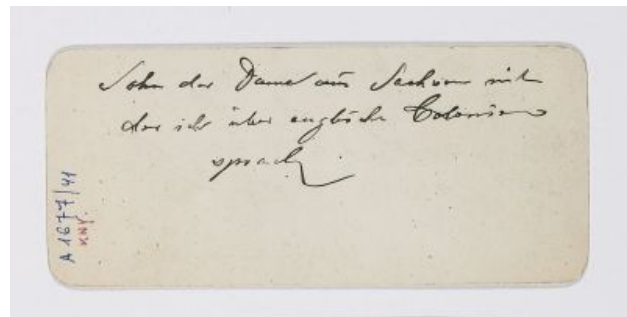 Sohn der Dame aus Sachsen mit
der ich über englische Colonien
sprach
A 1677/41
KNY.